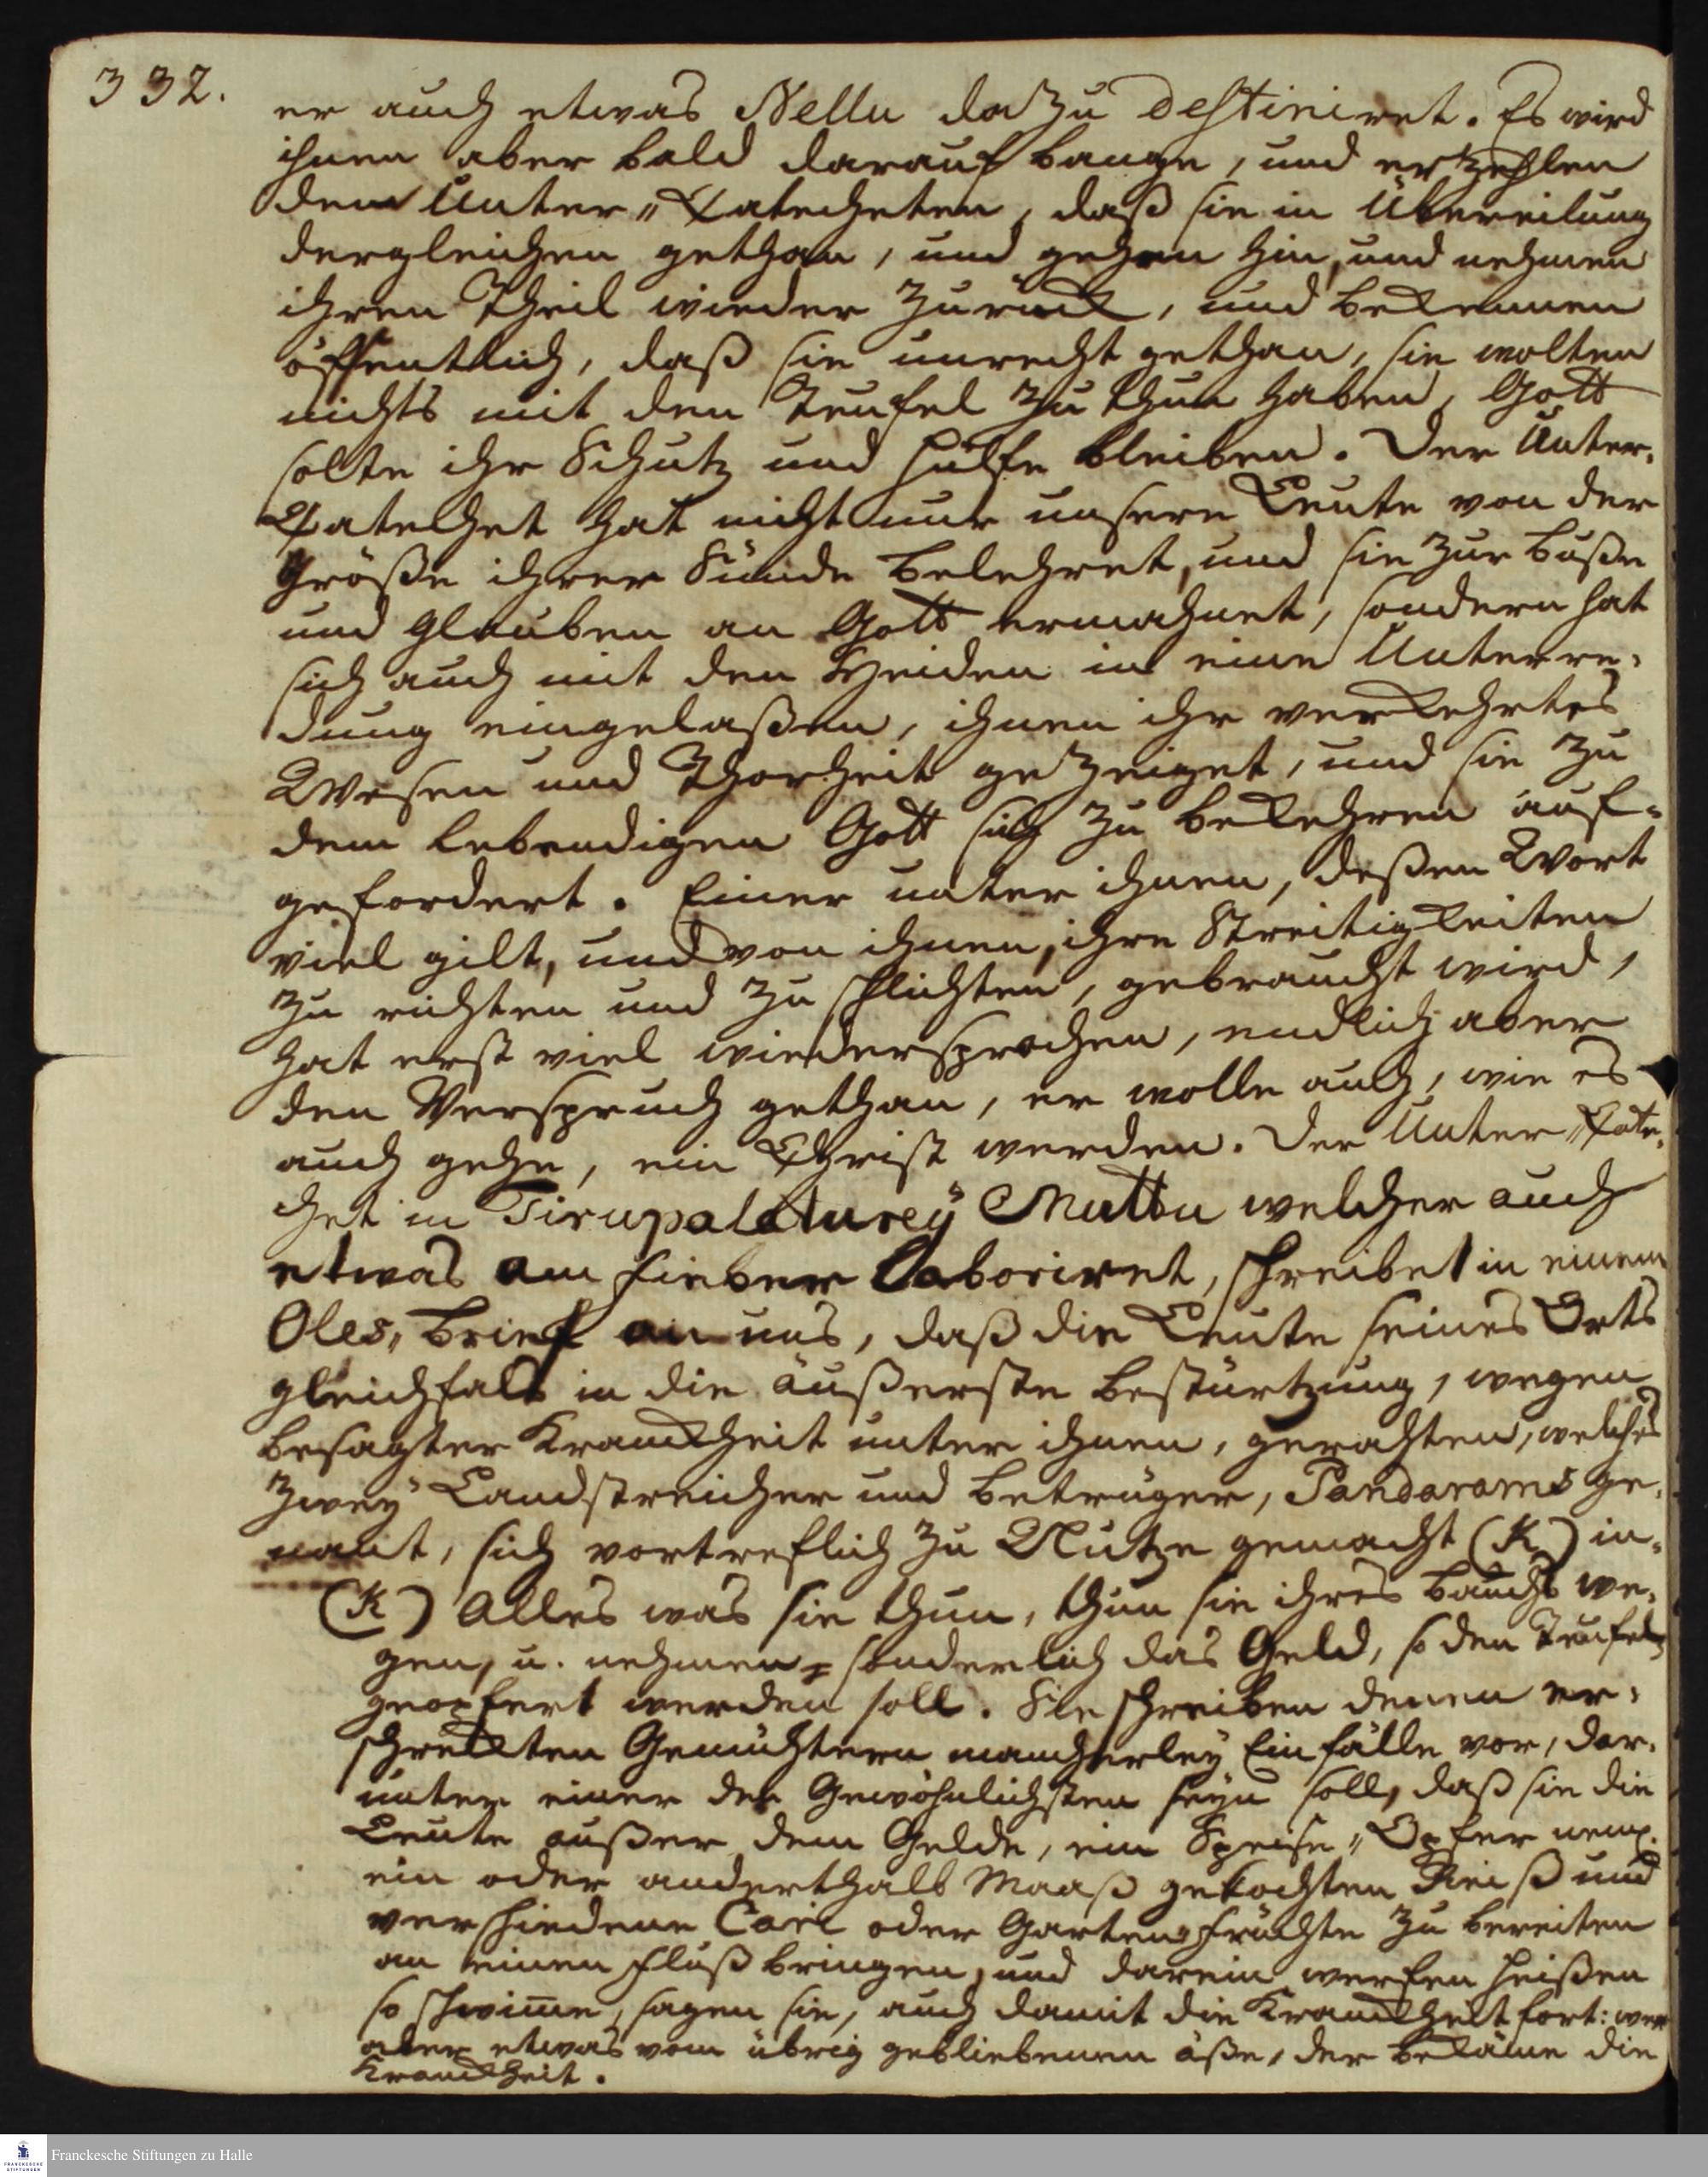 332.
er auch etwas Nellu dazu destiniret. Es wird
ihnen aber bald darauf bange, und erzehlen
dem Unter„Catecheten, daß sie in Übereilung
dergleichen gethan, und gehen hin, und nehmen
ihren Theil wieder zurück, und bekennen
öffentlich, daß sie unrecht gethan, sie wolten
nichts mit den Teufel zu thun haben, Gott
solte ihr Schutz und Hülfe bleiben. Der Unter-
Catechet hat nicht nur unsere Leute von der
Größe ihrer Sünde belehret, und sie zur Buße
und Glauben an Gott ermahnet, sondern hat
sich auch mit den Heiden in eine Unterre-
dung eingelaßen, ihnen ihr verkehrtes
Wesen und Thorheit gezeiget, und sie zu
dem lebendigen Gott sich zu bekehren auf-
gefordert. Einer unter ihnen, deßen Wort
viel gilt, und von ihnen, ihre Streitigkeiten
zu richten und zu schlichten, gebraucht wird,
hat erst viel wiedersprochen, endlich aber
den Verspruch gethan, er wolle auch, wie es
auch gehe, ein Christ werden. Der Unter„Cate-
chet in Tirupalaturey Muttu welcher auch
etwas am Fieber laboriret, schreibet in einem
Oles„ Brief an uns, daß die Leute seines Orts
gleichfals in die äußerste Bestürtzung, wegen
besagter Kranckheit unter ihnen, gerathen, welches
zwey Landstreicher und Betrüger, Pandarams ge-
nant, sich vortreflich zu Nutze gemacht (K) in-
(K) Alles was sie thun, thun sie ihres Bauchs we-
gen, u. nehmen sonderlich das Geld, so den Teufel
geopfert werden soll. Sie schreiben denen er-
schreckten Gemüthern mancherley Einfälle vor, dar-
unter einer der Gewöhnlichsten seyn soll, daß sie die
Leute außer dem Gelde, ein Speise„Opfer neml.
ein oder anderthalb Maaß gekochten Reiß und
verschiedene Cari oder Garten-Früchte zu bereiten
an einen Fluß bringen, und darein werfen heißen
so schwim̅e, sagen sie, auch damit die Kranckheit fort: wer
aber etwas vom übrig gebliebenen äße, der bekäme die
Kranckheit.
Franckesche Stiftungen zu Halle
FRANCKESCHE
STIFTUNGEN